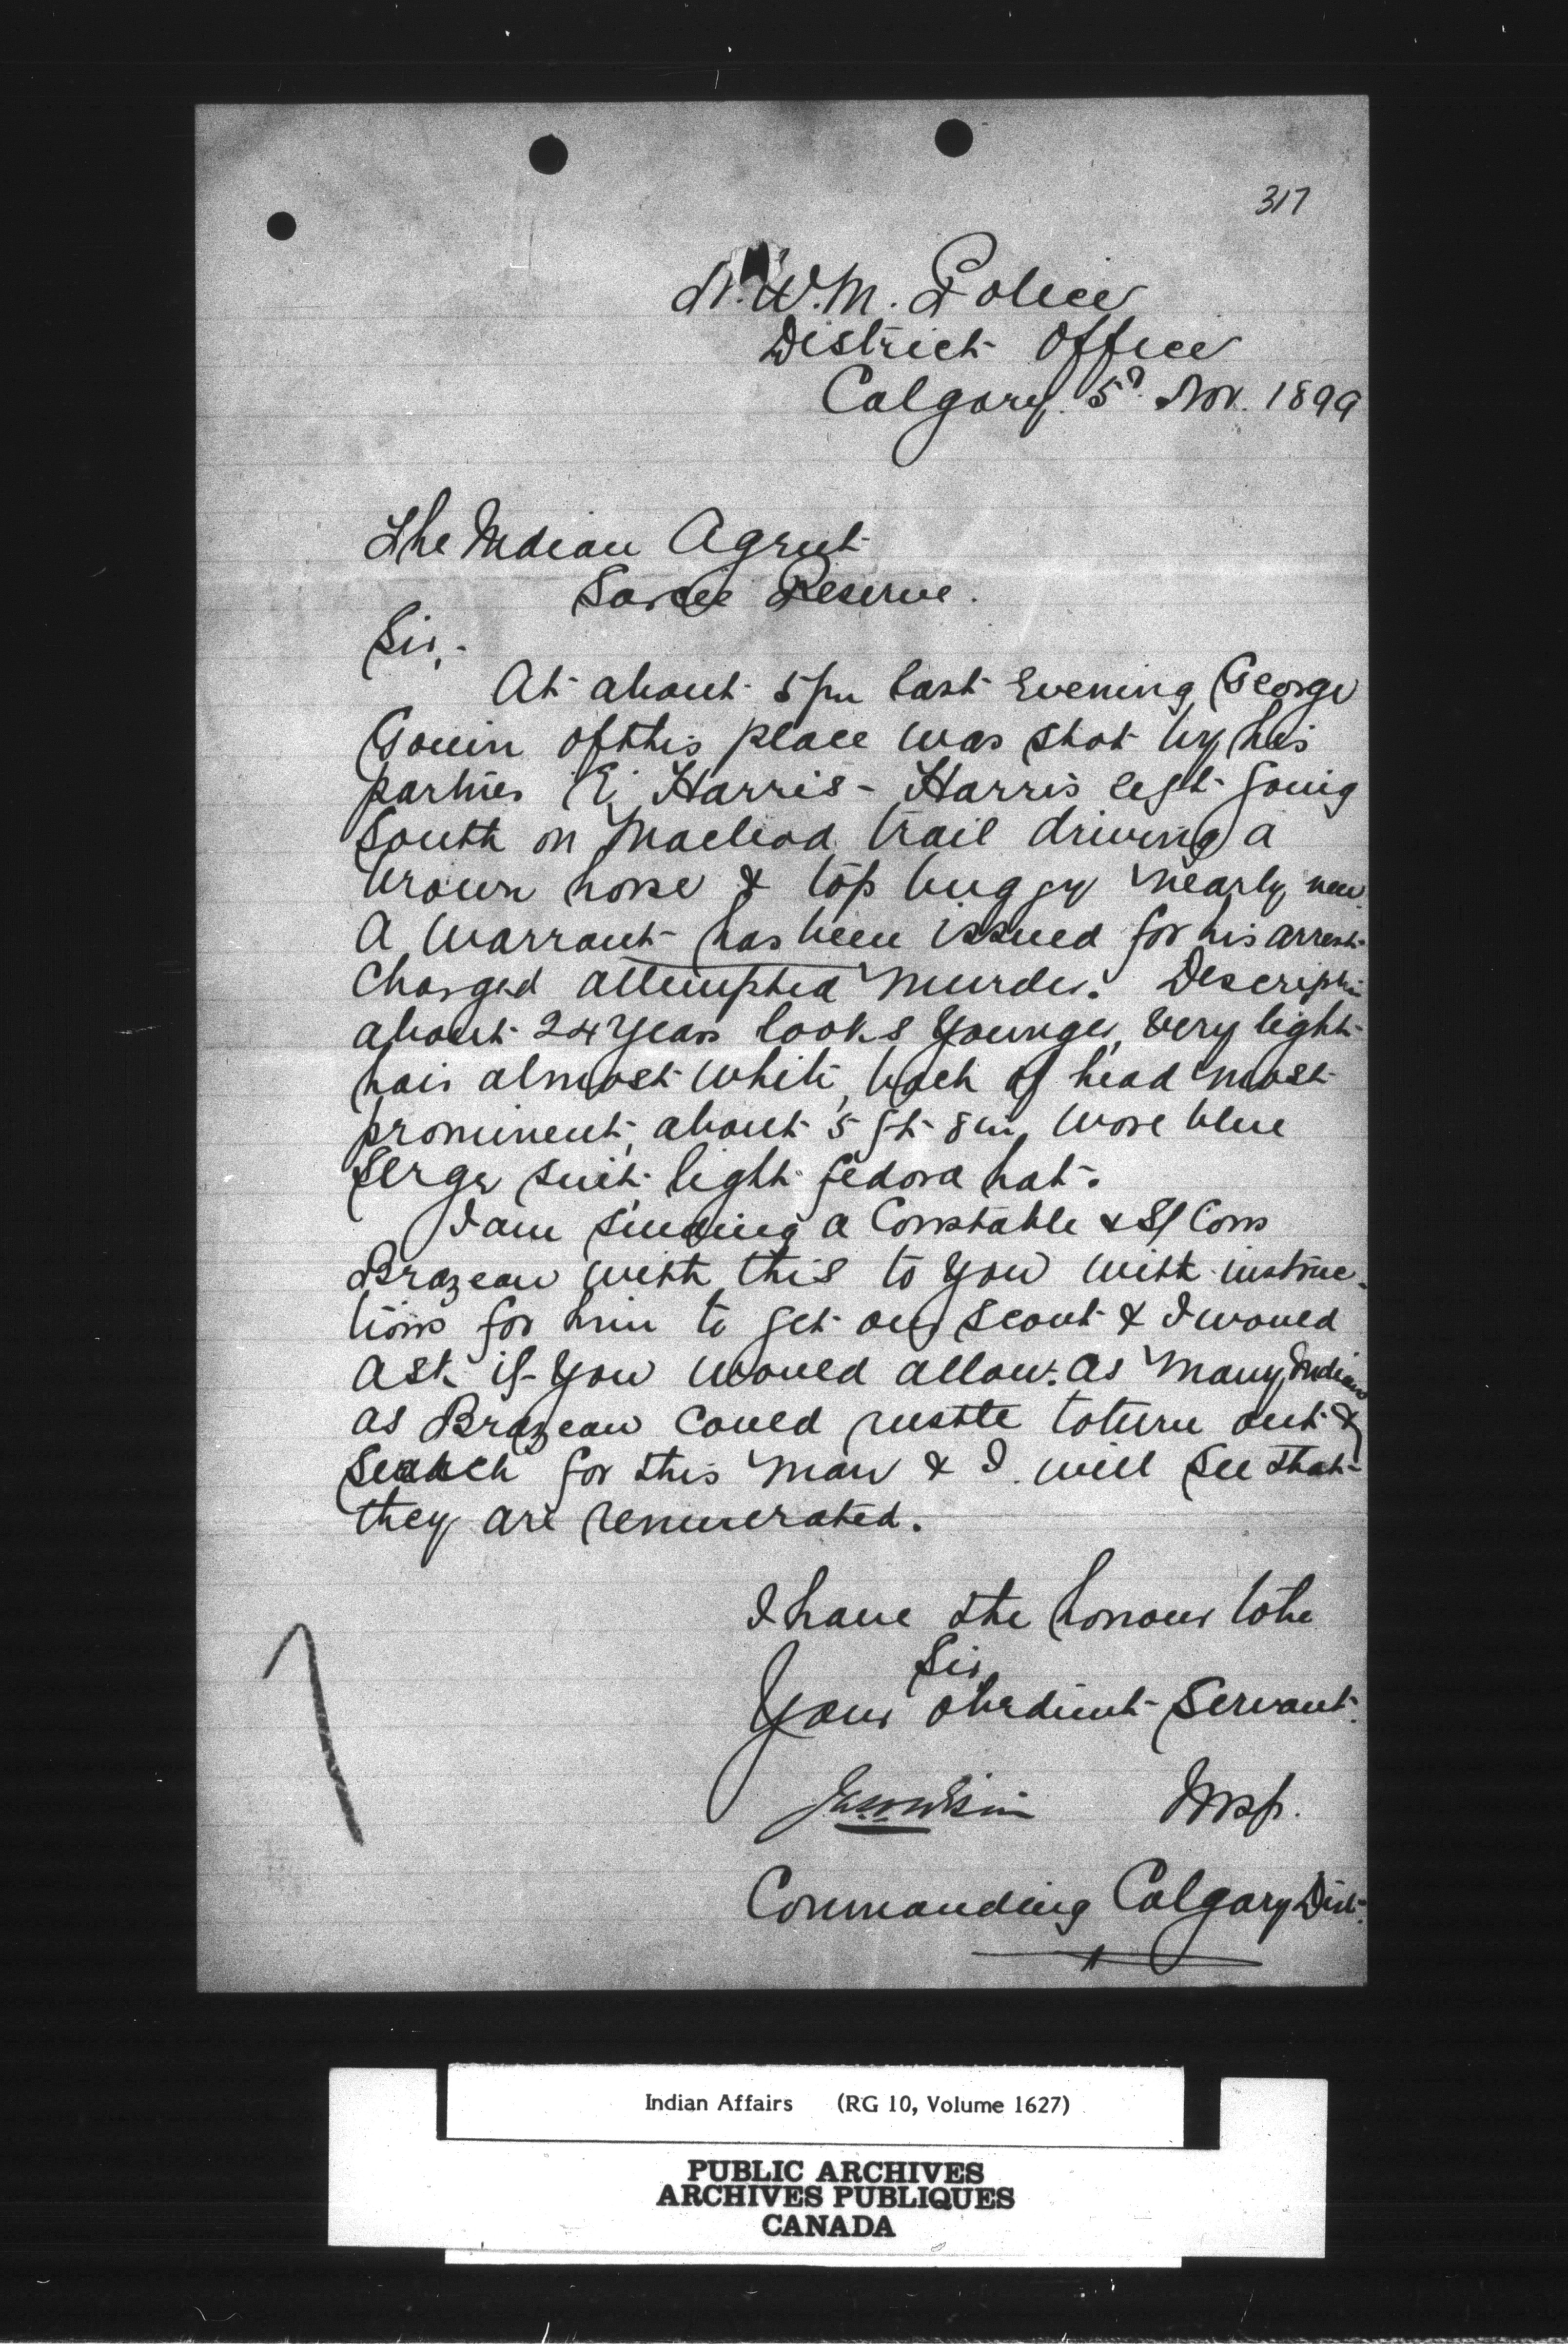 317
N.W.M. Police
District Office
Calgary. 5th Nov. 1899
The Indian Agent
Sarcee Reserve.
Sir,-
At about 5 pm last Evening George
Gouin of this place was shot by his
partner E. Harris - Harris left going
South on Macleod trail driving a
brown horse & top buggy nearly new.
A Warrant has been issued for his arrest
Charged attempted Murder. Description
about 24 years looks younger, very light
hair almost white, back of head most
prominent, about 5 ft 8 in, wore blue
Serge suit light fedora hat.
I am sending a Constable & S/ Cons
Brazeau with this to you with instruc-
tions for him to get our scout & I would
ask if you would allow as many Indians
as Brazeau could rustle to turn out &
search for this man & I will see that
they are renumerated.
I have the honour to be
Sir,
Your obedient Servant.
Insp.
Commanding Calgary Dist.
Indian Affairs (RG 10, Volume 1627)
PUBLIC ARCHIVES
ARCHIVES PUBLIQUES
CANADA